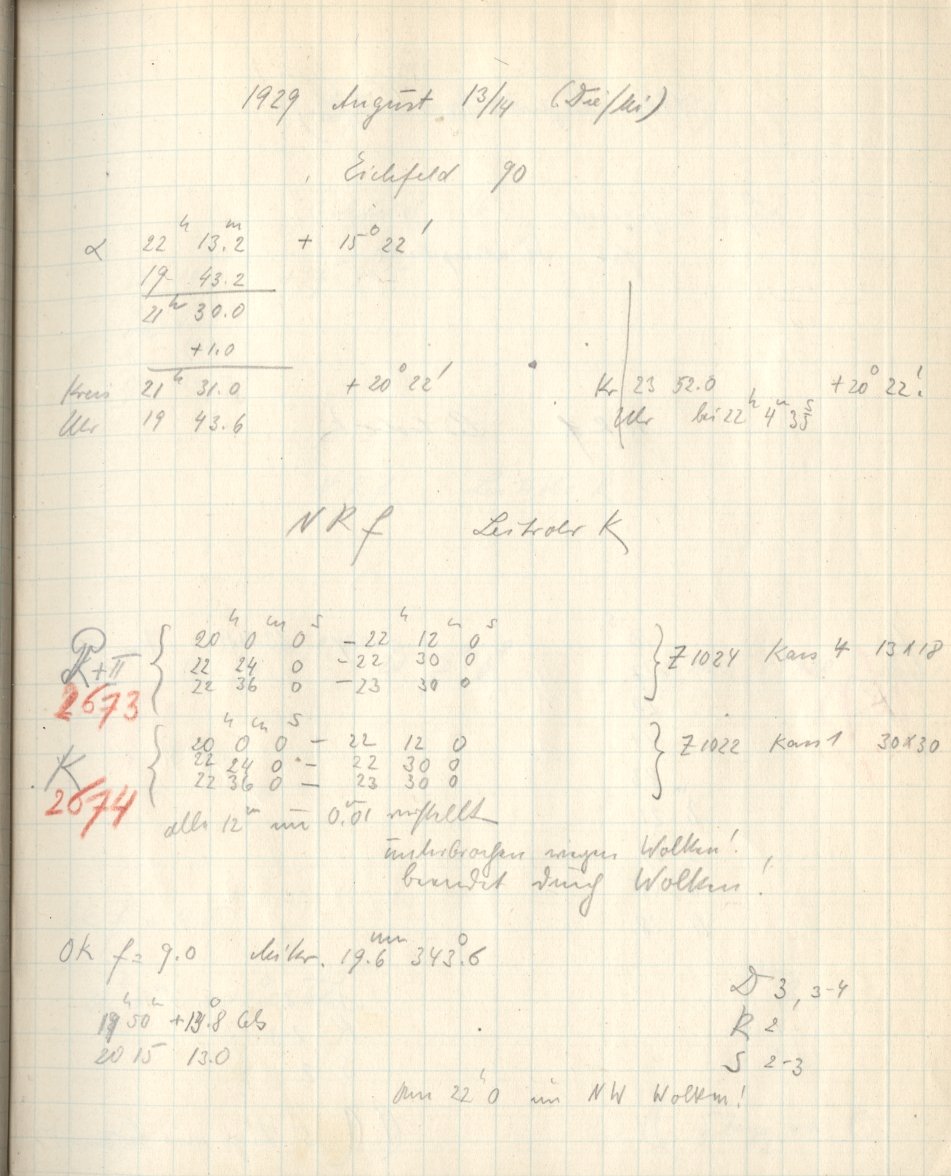 1929 August 13/14 (Die/Mi)
Eichfeld 90
α 22ʰ 13.ᵐ2 + 15° 22'
19 43.2
21ʰ 30.0
+1.0
Kreis 21ʰ 31.0 +20° 22'
Uhr 19 43.6
Kr 23 52.0 +20° 22'
Uhr bei 22ʰ 4ᵐ 35ˢ
NRf Leitrohr K
R+II
2673
20ʰ 0ᵐ 0ˢ – 22ʰ 12ᵐ 0ˢ
22 24 0 – 22 30 0
22 36 0 – 23 30 0
Z 1024 Kass 4 13x18
K
2674
20ʰ 0ᵐ 0ˢ – 22 12 0
22 24 0 – 22 30 0
22 36 0 – 23 30 0
Z 1022 Kass 1 30x30
alle 12ᵐ um 0.01 verstellt
unterbrochen wegen Wolken!
beendet durch Wolken!
OK f = 9.0 Mikr. 19.ᵐᵐ6 343.°6
19ʰ 50ᵐ +13.°8 Cels
20 15 13.0
D 3, 3-4
R 2
S 2-3
Um 22ʰ0 im NW Wolken!